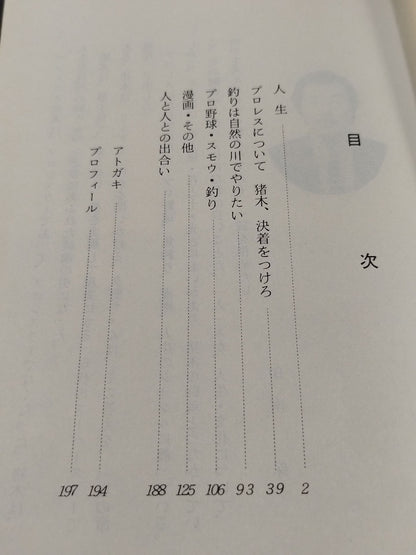 目次
人生 2
プロレスについて 猪木、決着をつけろ 39
釣りは自然の川でやりたい 93
プロ野球・スモウ・釣り 106
漫画・その他 125
人と人との出合い 188
アトガキ 194
プロフィール 197